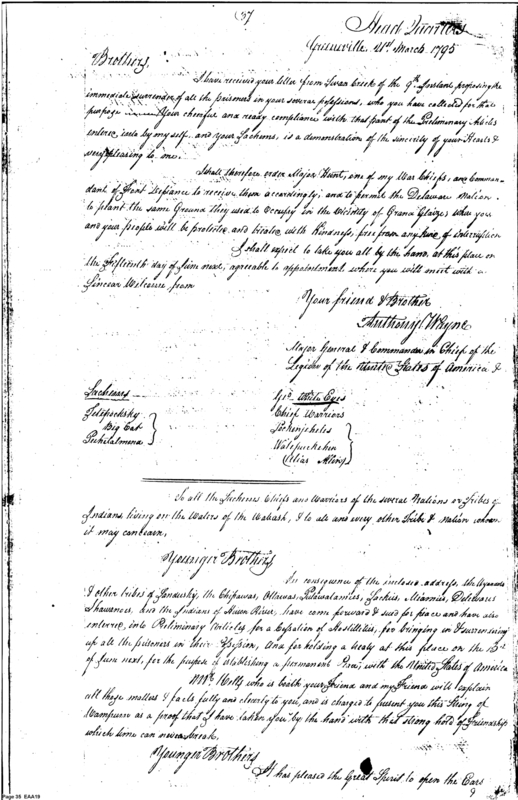 (37
Head Quarters
Greenville 21st March 1795
Brothers,
I have received your letter from Swan Creek of the 9th Instant proposing the
immediate surrender of all the prisoners in your several possessions, who you have collected for that
purpose Your cheerful and ready compliance with that part of the Preliminary Articles
entered into by myself and Your Sachems, is a demonstration of the sincerity of your Hearts &
very pleasing to me.
I shall therefore order Major Hunt, one of my War Chiefs, and Comman-
dant of Fort Defiance to receive them accordingly; and to permit the Delaware Nation
to plant the same Ground they used to occupy in the Vicinity of Grand Glaize, where you
and your people will be protected and treated with Kindness, free from any kind of interruption
I shall expect to take you all by the hand, at this place on
the fifteenth day of June next, agreeable to appointment where you will meet with a
Sincear Welcome, from
Your friend & Brother
Anthony Wayne
Major General & Commander in Chief of the
Legion of the United States of America &
Sachems
Geo. White Eyes
Tetepocksky
Big Cat
Chief Warriors
Wa
alias
To all the Sachems Chiefs and Warriors of the several Nations or Tribes of
Indians living on the Waters of the Wabash, & to all and every other Tribe & nation whom
it may concern,
Younger Brothers
In consequence of the inclosed address, the Wyandots
& other tribes of Sandusky, the Chipawas, Ottawas, Putawatamies, Sackies, Miamies, Delewares
Shawanoes, and the Indians of Huron River, have come forward & sued for peace and have also
entered into Preliminary Articles for a Cessation of Hostilities, for bringing in & surrendering
up all the prisoners in their possession, and for holding a treaty at this place on the 15th
of June next, for the purpose of establishing a permanent Peace, with the United States of America
who is boath your friend and my Friend will explain
all those matters & facts fully and clearly to you, and is charged to present you this String of
Wampum as a proof that I have taken you by the hand with that strong hold of Friendship
which time can never break.
Younger Brothers
It has pleased the Great Spirit to open the Ears
Page 35 EAA19